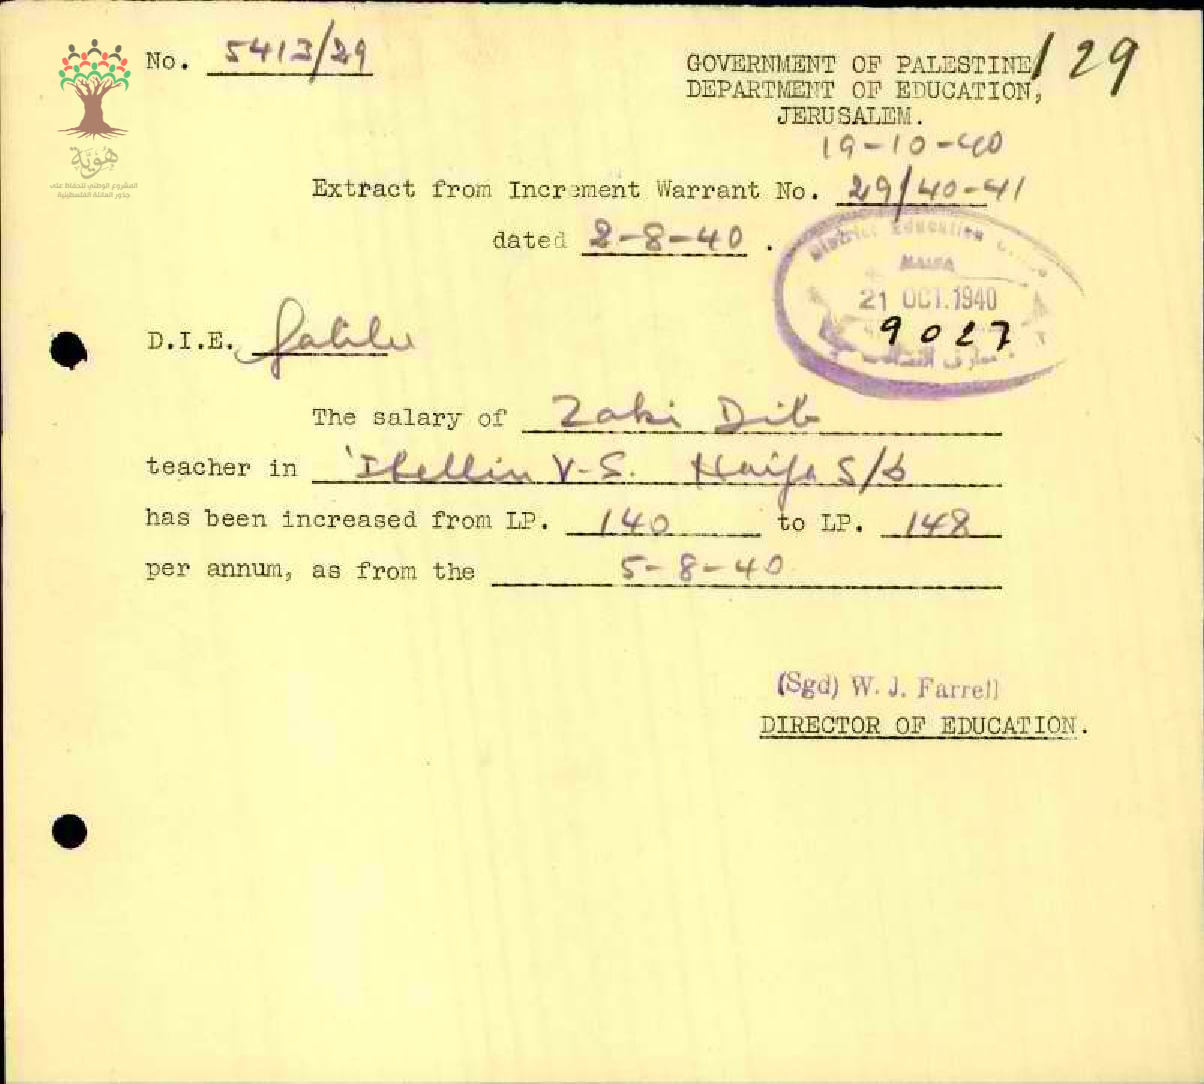 No. 5413/29
GOVERNMENT OF PALESTINE
/29
DEPARTMENT OF EDUCATION,
JERUSALEM.
19-10-40
هُوِيَّة
المشروع الوطني للحفاظ على
جذور العائلة الفلسطينية
Extract from Increment Warrant No. 29/40-41
dated 2-8-40 .
District Education
HAIFA
21 OCT.1940
9027
معارف
D.I.E. Galilee
The salary of Zaki Dib
teacher in 'Ibellin V-S. Haifa S/D
has been increased from LP. 140 to LP. 148
per annum, as from the 5-8-40
(Sgd) W. J. Farrell
DIRECTOR OF EDUCATION.